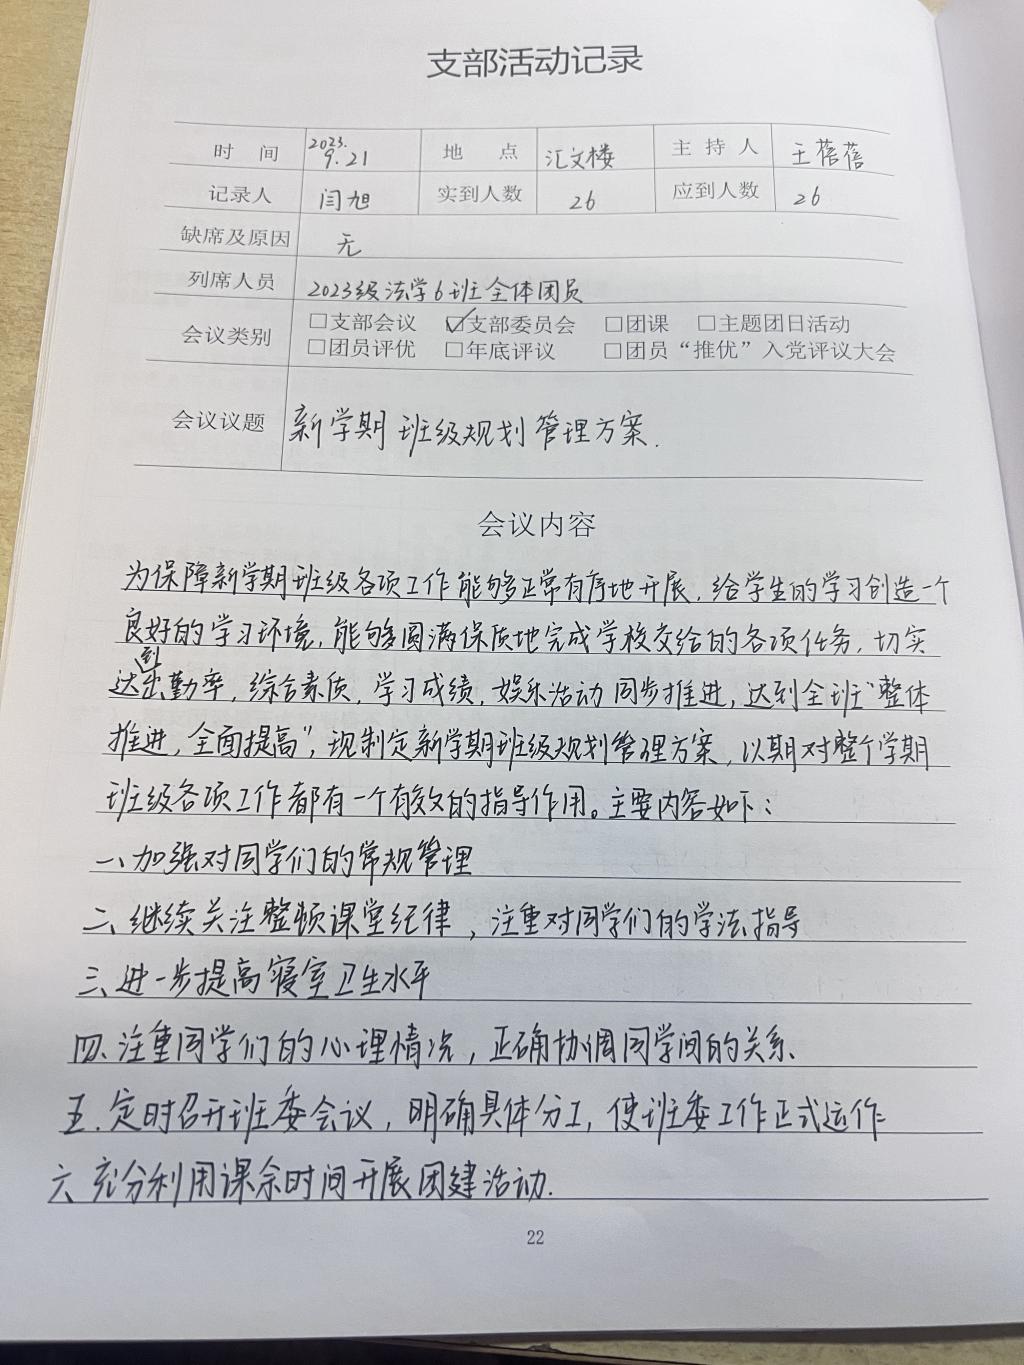 支部活动记录
时 间 2023.9.21 地 点 汇文楼 主 持 人 王蓓蓓
记录人 闫旭 实到人数 26 应到人数 26
缺席及原因 无
列席人员 2023级法学6班全体团员
会议类别 □支部会议 ☑支部委员会 □团课 □主题团日活动
□团员评优 □年底评议 □团员“推优”入党评议大会
会议议题 新学期班级规划管理方案.
会议内容
为保障新学期班级各项工作能够正常有序地开展,给学生的学习创造一个
良好的学习环境,能够圆满保质地完成学校交给的各项任务,切实
达到出勤率,综合素质,学习成绩,娱乐活动同步推进,达到全班“整体
推进,全面提高”,现制定新学期班级规划管理方案,以期对整个学期
班级各项工作都有一个有效的指导作用。主要内容如下:
一、加强对同学们的常规管理
二、继续关注整顿课堂纪律,注重对同学们的学法指导
三、进一步提高寝室卫生水平
四、注重同学们的心理情况,正确协调同学间的关系、
五.定时召开班委会议,明确具体分工,使班委工作正式运作
六、充分利用课余时间开展团建活动.
22